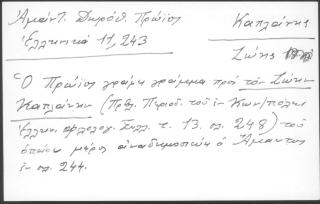 Ἀμάντ. Δωρόθ. Πρώϊος
Ἑλληνικά 11, 243
Καπλάνης
Ζώης
Ὁ Πρώϊος γράφει γράμμα πρός τόν Ζώην
Καπλάνην (Πρβ. Περιοδ. τοῦ ἐν Κων/πόλει
Ἑλλην. φιλολογ. Συλλ. τ. 13. σ. 248) τοῦ
ὁποίου μέρος ἀναδημοσιεύει ὁ Ἄμαντος
ἐν σ. 244.